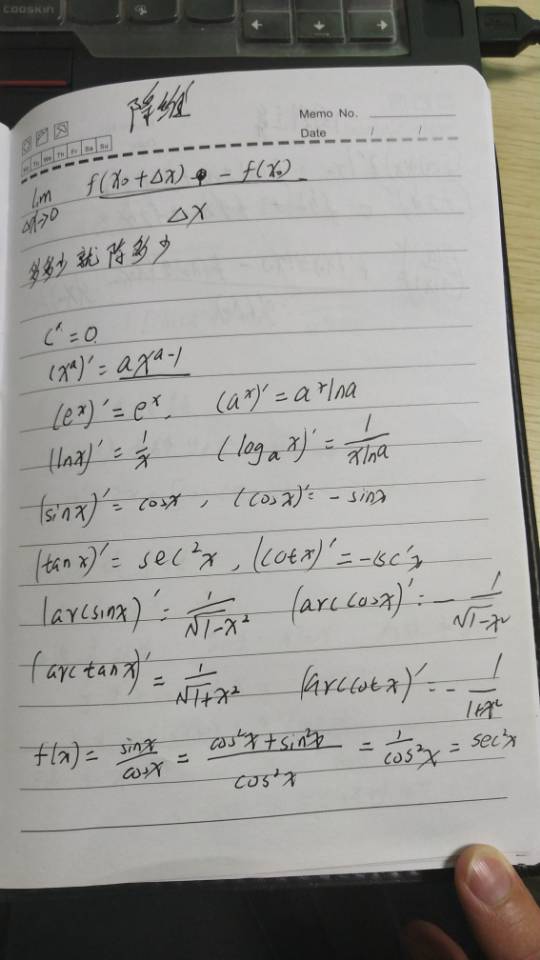 COOSKIN
降维
Memo No.
Date / /
Tu We Th Fr Sa Su
lim Δx→0 (f(x₀+Δx) - f(x₀)) / Δx
多多少就降多少
C' = 0
(xᵃ)' = axᵃ⁻¹
(eˣ)' = eˣ, (aˣ)' = aˣlna
(lnx)' = 1/x (logₐx)' = 1/(xlna)
(sinx)' = cosx, (cosx)' = -sinx
(tanx)' = sec²x, (cotx)' = -csc²x
(arcsinx)' = 1/√(1-x²) (arccosx)' = -1/√(1-x²)
(arctanx)' = 1/√(1+x²) (arccotx)' = -1/(1+x²)
f(x) = sinx/cosx = (cos²x+sin²x)/cos²x = 1/cos²x = sec²x